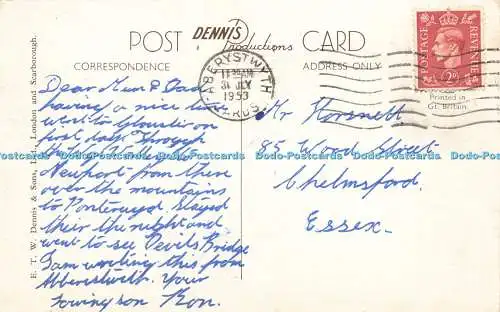 POST DENNIS Productions CARD
CORRESPONDENCE
ADDRESS ONLY
ABERYSTWYTH
31 JLY
1953
CARDS
POSTAGE REVENUE
Printed in
Gt. Britain
E. T. W. Dennis & Sons, Ltd., London and Scarborough.
Dear Mum & Dad
having a nice time
went to Gloucester on
first day. Through
Newport from there
over the mountains
to Ponterwyd stayed
their the night and
went to see Devils Bridge
I am writing this from
Abberestwith. Your
loving son Ron.
Mr Horsnell
85 Wood Street
Chelmsford.
Essex.
Dodo-Postcards Dodo-Postcards Dodo-Postcards Dodo-Postcards Dodo-Postcards